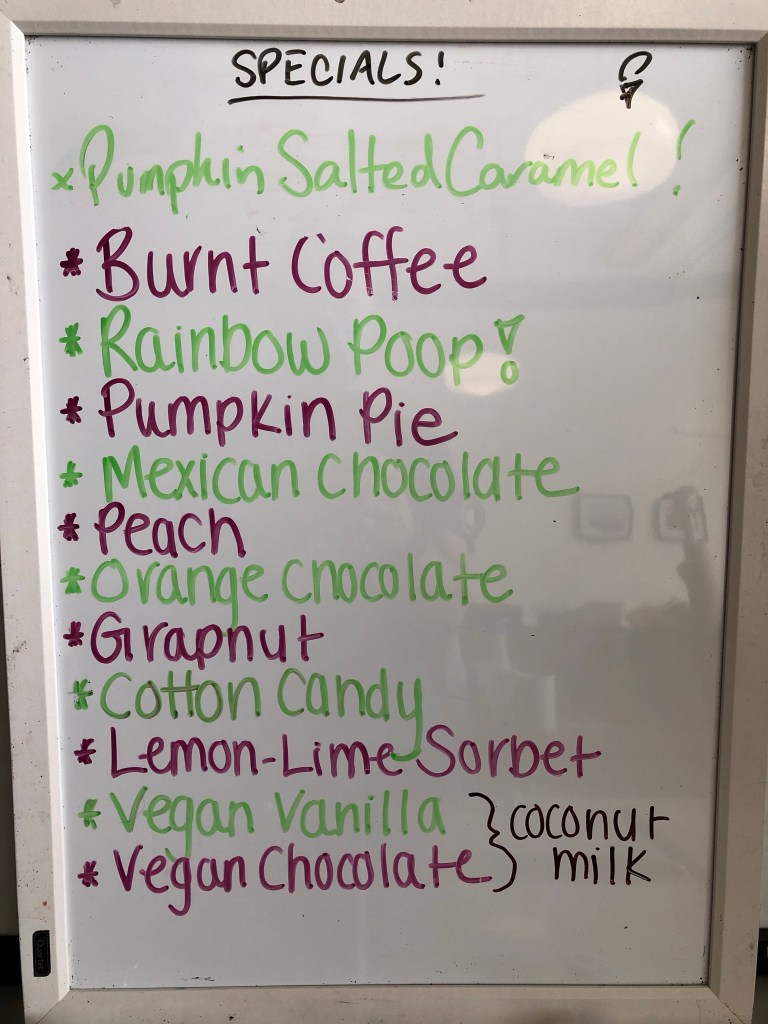 SPECIALS!
x Pumpkin Salted Caramel!
* Burnt Coffee
* Rainbow Poop!
* Pumpkin Pie
* Mexican Chocolate
* Peach
* Orange Chocolate
* Grapnut
* Cotton Candy
* Lemon-Lime Sorbet
* Vegan Vanilla } coconut
* Vegan Chocolate } milk